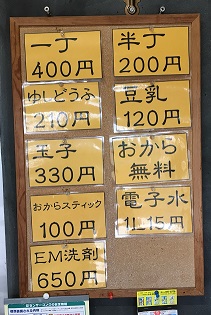 一丁
400円
半丁
200円
ゆしどうふ
210円
豆乳
120円
玉子
330円
おから
無料
おからスティック
100円
電子水
1L15円
EM洗剤
650円